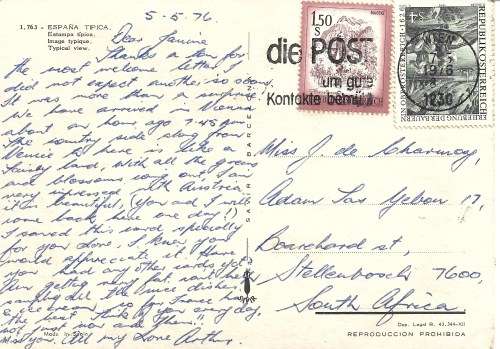 1.763 - ESPAÑA TIPICA.
Estampa típica.
Image typique.
Typical view.
5-5-76.
Dear Janine
Thanks a ton for
the most welcome letter. I
did not expect another, so soon.
It was more than a surprise.
We have arrived in Vienna
about an hour ago 7-45 pm.
The country side along from
Venice to here is like a
fairy land. With all the greens
and blossoms coming out, I am
very impressed with Austria
It is beautiful, (You and I will
come back here one day!)
I saved this card specially
for you Love. I knew you
would appreciate it. Have
you had any other cards yet?
Am getting
sampling all the
ice cream, so far France has
the best. I think of you every day,
not just now and then!!
Miss you. All my Love Arthur.
Made in Spain
SAVIR BARCELONA
1.50
S
REPUBLIK ÖSTERREICH
S4
die POST
um gute
Kontakte bemüht
WIEN
1976
1230
Miss J. de Charmoy,
Adam Tas Gebou 17,
Bourchard st,
Stellenbosch 7600,
South Africa
Dep. Legal B. 43.344-XII
REPRODUCCION PROHIBIDA